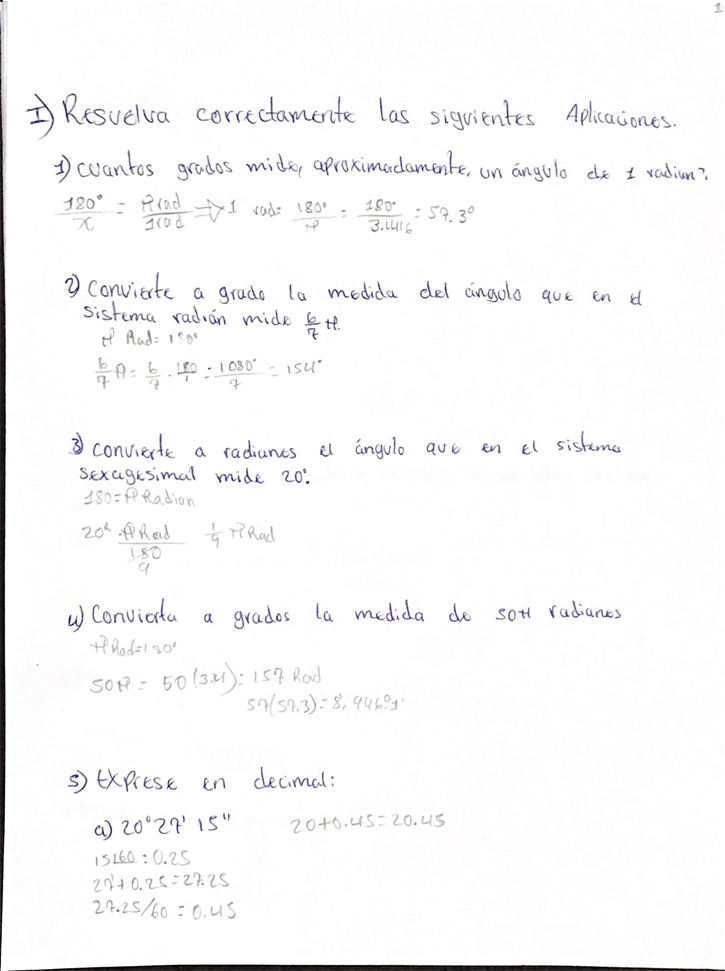 1
I) Resuelva correctamente las siguientes Aplicaciones.
1) cuantos grados mide, aproximadamente, un ángulo de 1 radian?.
180°/x = π rad/1rad => 1 rad = 180°/π = 180°/3.1416 = 57.3°
2) Convierte a grado la medida del ángulo que en el
sistema radián mide 6/7 π.
π Rad = 180°
6/7 π = 6/7 . 180/1 = 1080°/7 = 154°
3) convierte a radianes el ángulo que en el sistema
sexagesimal mide 20°.
180 = π Radian
20° . π Rad/180 1/9 π Rad
9
4) Convierta a grados la medida de 50π radianes
π Rad = 180°
50π = 50(3.14) = 157 Rad
57(57.3) = 8,996.1°
5) Exprese en decimal:
a) 20° 27' 15" 20+0.45=20.45
15/60 = 0.25
27+0.25=27.25
27.25/60 = 0.45